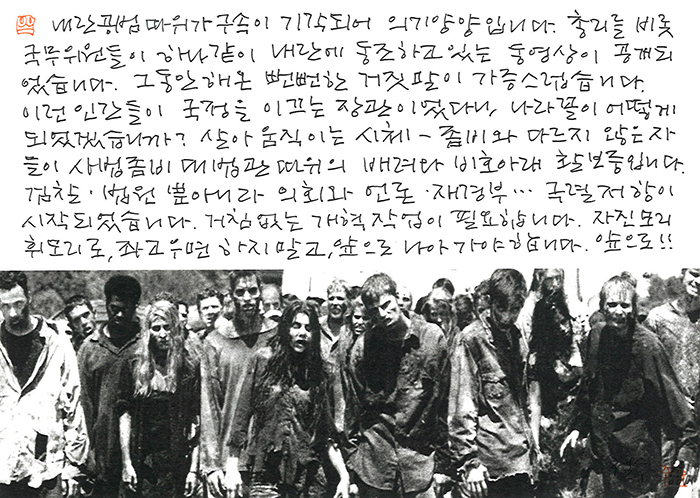 내란공범 따위가 구속이 기각되어 의기양양입니다. 총리를 비롯
국무위원들이 하나같이 내란에 동조하고 있는 동영상이 공개되
었습니다. 그동안 해온 뻔뻔한 거짓말이 가증스럽습니다.
이런 인간들이 국정을 이끄는 장관이었다니, 나라꼴이 어떻게
되었겠습니까? 살아 움직이는 시체 - 좀비와 다르지 않은 자
들이 사법좀비 대법관 따위의 배려와 비호아래 활보중입니다.
검찰·법원 뿐아니라 의회와 언론·재경부… 극렬저항이
시작되었습니다. 거침없는 개혁작업이 필요합니다. 자진모리
휘모리로, 좌고우면 하지말고, 앞으로 나아가야 합니다. 앞으로!!